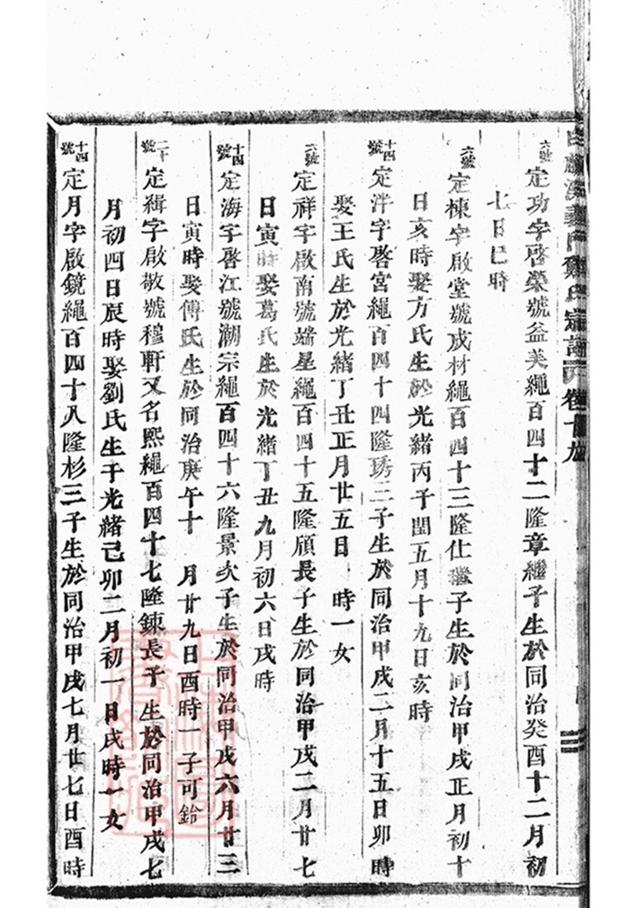 氏宗譜 卷十九
六號 定功字啓榮號益美繩百四十二隆章繼子生於同治癸酉十二月初
七日巳時
六號 定棟字啟堂號成材繩百四十三隆仕繼子生於同治甲戌正月初十
日亥時娶方氏生於光緒丙子閏五月十九日亥時
十四號 定泮字啓宮繩百四十四隆琇二子生於同治甲戌二月十五日卯時
娶王氏生於光緒丁丑正月廿五日 時一女
定祥字啟南號端星繩百四十五隆頎長子生於同治甲戌二月廿七
日寅時娶葛氏生於光緒丁丑九月初六日戌時
十四號 定海字啓江號潮宗繩百四十六隆景次子生於同治甲戌六月廿三
日寅時娶傅氏生於同治庚午十 月廿九日酉時一子可鈴
二十號 定緝字啟敬號穆軒又名熙繩百四十七隆鍊長子生於同治甲戌七
月初四日辰時娶劉氏生于光緒己卯二月初一日戌時一女
十四號 定月字啟鏡繩百四十八隆杉三子生於同治甲戌七月廿七日酉時